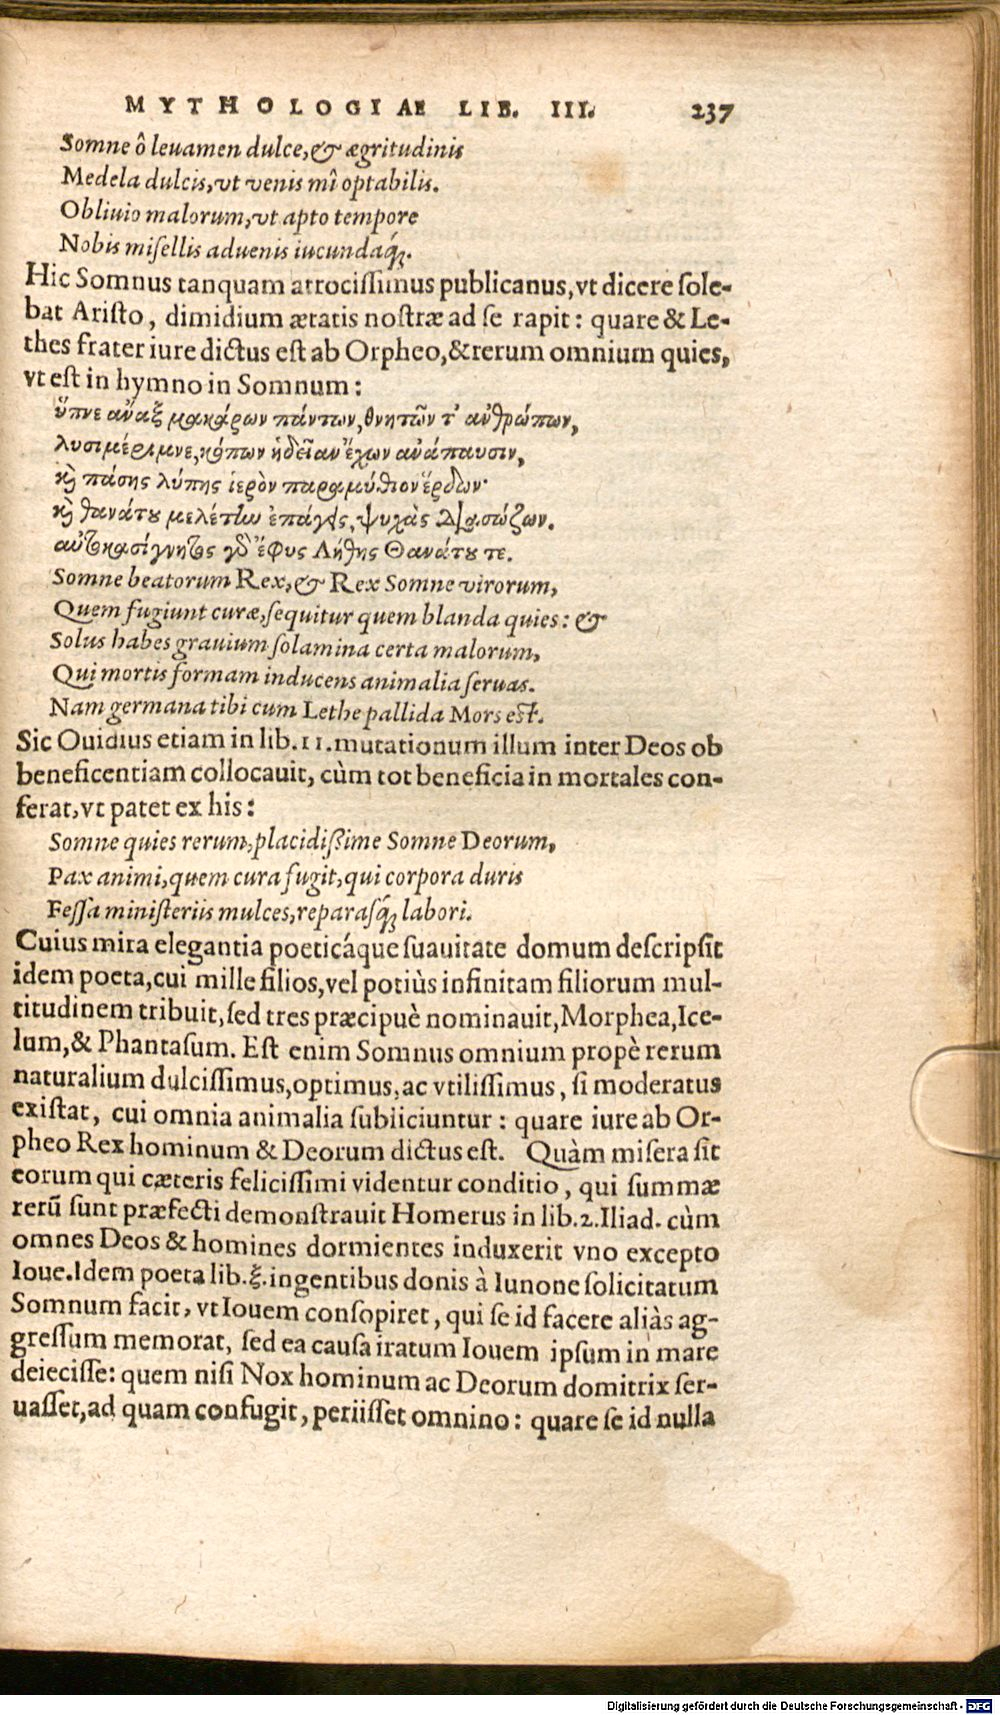 MYTHOLOGIAE LIB. III. 237
Somne ô leuamen dulce, & ægritudinis
Medela dulcis, vt venis mî optabilis.
Obliuio malorum, vt apto tempore
Nobis miſellis aduenis iucundaq́;.
Hic Somnus tanquam atrociſſimus publicanus, vt dicere ſole-
bat Ariſto, dimidium ætatis noſtræ ad ſe rapit: quare & Le-
thes frater iure dictus eſt ab Orpheo, & rerum omnium quies,
vt eſt in hymno in Somnum:
ὕπνε ἄναξ μακάρων πάντων, θνητῶν τ᾽ ἀνθρώπων,
λυσιμέριμνε, κόπων ἡδεῖαν ἔχων ἀνάπαυσιν,
καὶ πάσης λύπης ἱερὸν παραμύθιον ἕρδων·
καὶ θανάτου μελέτην ἐπάγεις, ψυχὰς διασώζων.
αὐτοκασίγνητος γὰρ ἔφυς Λήθης Θανάτου τε.
Somne beatorum Rex, & Rex Somne virorum,
Quem fugiunt curæ, ſequitur quem blanda quies: &
Solus habes grauium ſolamina certa malorum,
Qui mortis formam inducens animalia ſeruas.
Nam germana tibi cum Lethe pallida Mors eſt.
Sic Ouidius etiam in lib. 11. mutationum illum inter Deos ob
beneficentiam collocauit, cùm tot beneficia in mortales con-
ferat, vt patet ex his:
Somne quies rerum, placidißime Somne Deorum,
Pax animi, quem cura fugit, qui corpora duris
Feſſa miniſteriis mulces, reparaſq́; labori.
Cuius mira elegantia poeticáque ſuauitate domum deſcripſit
idem poeta, cui mille filios, vel potiùs infinitam filiorum mul-
titudinem tribuit, ſed tres præcipuè nominauit, Morphea, Ice-
lum, & Phantaſum. Eſt enim Somnus omnium propè rerum
naturalium dulciſſimus, optimus, ac vtiliſſimus, ſi moderatus
exiſtat, cui omnia animalia ſubiiciuntur: quare iure ab Or-
pheo Rex hominum & Deorum dictus eſt. Quàm miſera ſit
eorum qui cæteris feliciſſimi videntur conditio, qui ſummæ
rerū ſunt præfecti demonſtrauit Homerus in lib. 2. Iliad. cùm
omnes Deos & homines dormientes induxerit vno excepto
Ioue. Idem poeta lib. ξ. ingentibus donis à Iunone ſolicitatum
Somnum facit, vt Iouem conſopiret, qui ſe id facere aliàs ag-
greſſum memorat, ſed ea cauſa iratum Iouem ipſum in mare
deieciſſe: quem niſi Nox hominum ac Deorum domitrix ſer-
uaſſet, ad quam confugit, periiſſet omnino: quare ſe id nulla
Digitalisierung gefördert durch die Deutsche Forschungsgemeinschaft - DFG